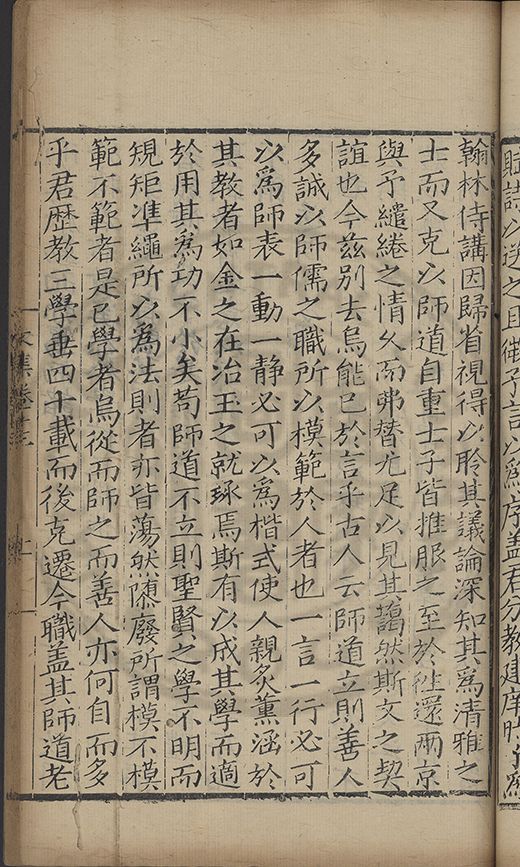 賦詩以送之且徵予言以爲序蓋君分教建庠時
翰林侍講因歸省視得以聆其議論深知其爲清雅之
士而又克以師道自重士子皆推服之至於徃還兩京
與予繾綣之情久而弗替尤足以見其藹然斯文之契
誼也今茲別去烏能已於言乎古人云師道立則善人
多誠以師儒之職所以模範於人者也一言一行必可
以爲師表一動一靜必可以爲楷式使人親炙薰涵於
其教者如金之在冶玉之就琢焉斯有以成其學而適
於用其爲功不小矣苟師道不立則聖賢之學不明而
規矩準繩所以爲法則者亦皆蕩然隳廢所謂模不模
範不範者是已學者烏從而師之而善人亦何自而多
乎君歷教三學垂四十載而後克遷今職蓋其師道老